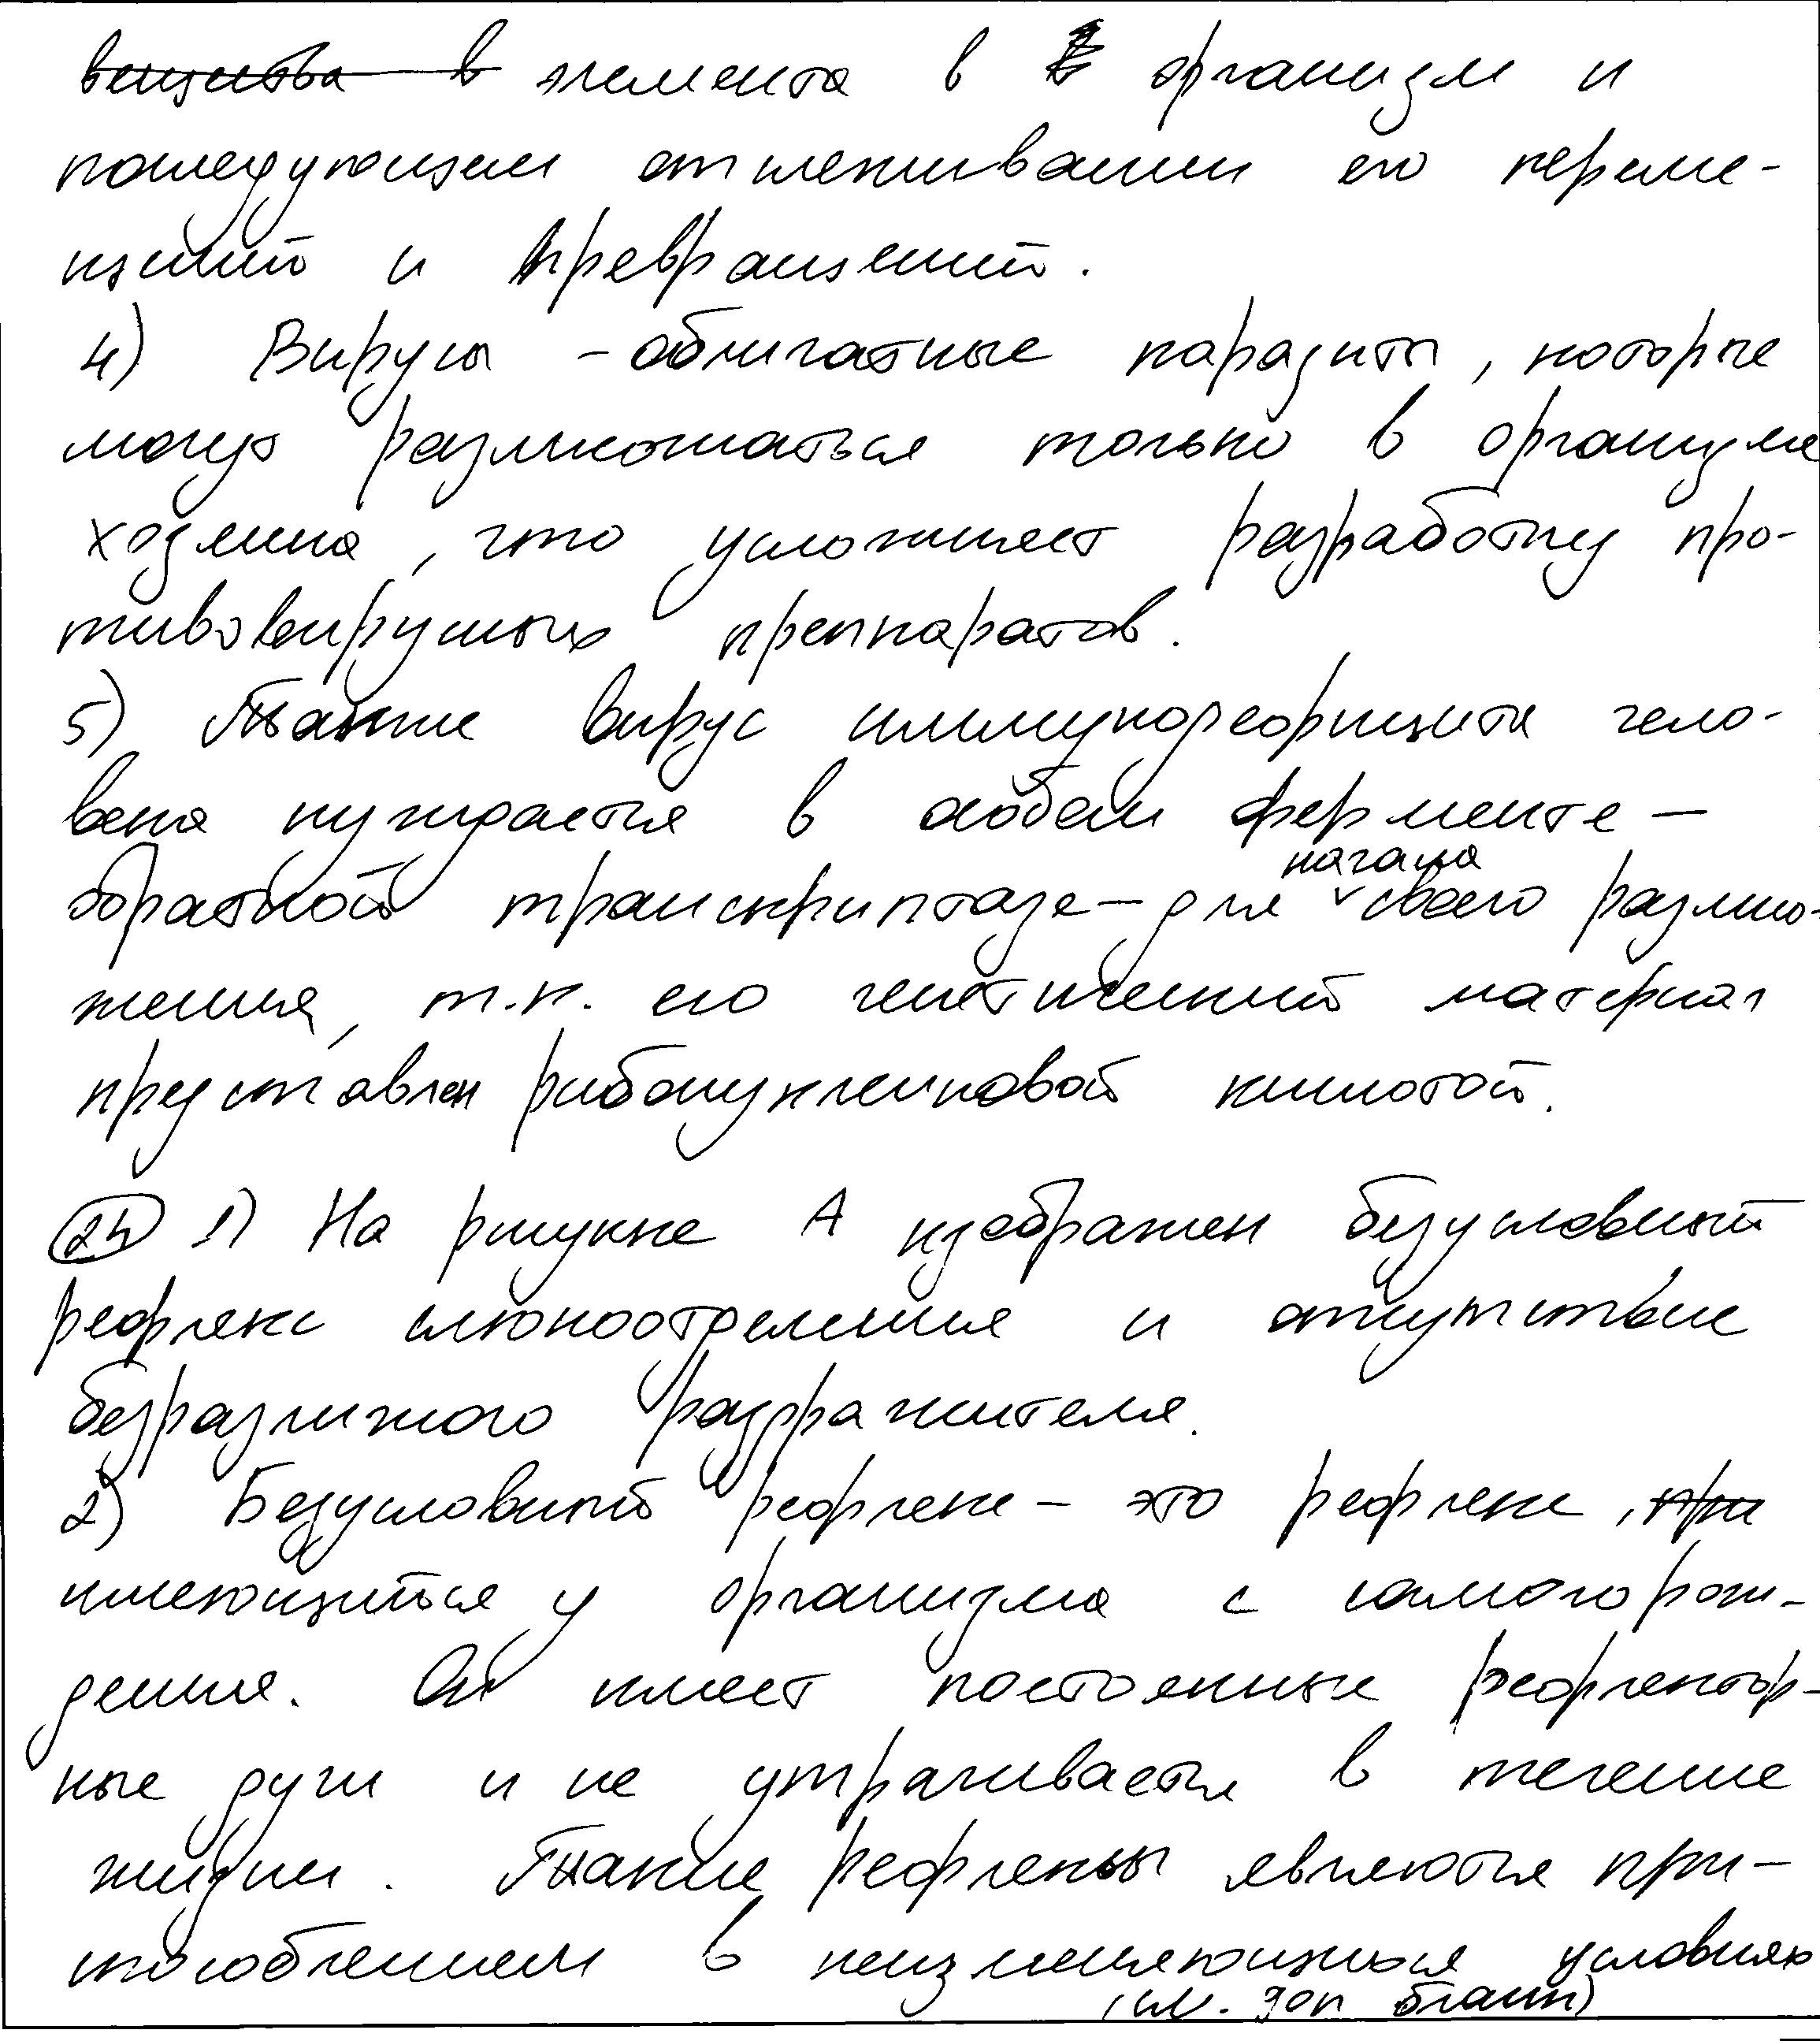 вещества в элемента в организм и
последующем отслеживании его переме-
щений и превращений.
4) Вирусы - облигатные паразиты, которые
могут размножаться только в организме
хозяина, что усложняет разработку про-
тивовирусных преппаратов.
5) Также вирус иммунодефицита чело-
века нуждается в особом ферменте —
обратной транскриптазе — для начала своего размно-
жения, т.к. его генетический материал
представлен рибонуклеиновой кислотой.
24 1) На рисунке А изображен безусловный
рефлекс слюноотделения и отсутствие
безразличного раздражителя.
2) Безусловный рефлекс - это рефлекс, при
имеющийся у организма с самого рож-
дения. Он имеет постоянные рефлектор-
ные дуги и не утрачивается в течение
жизни. Такие рефлексы являются при-
способлением в неизменяющихся условиях
(см. доп бланк)